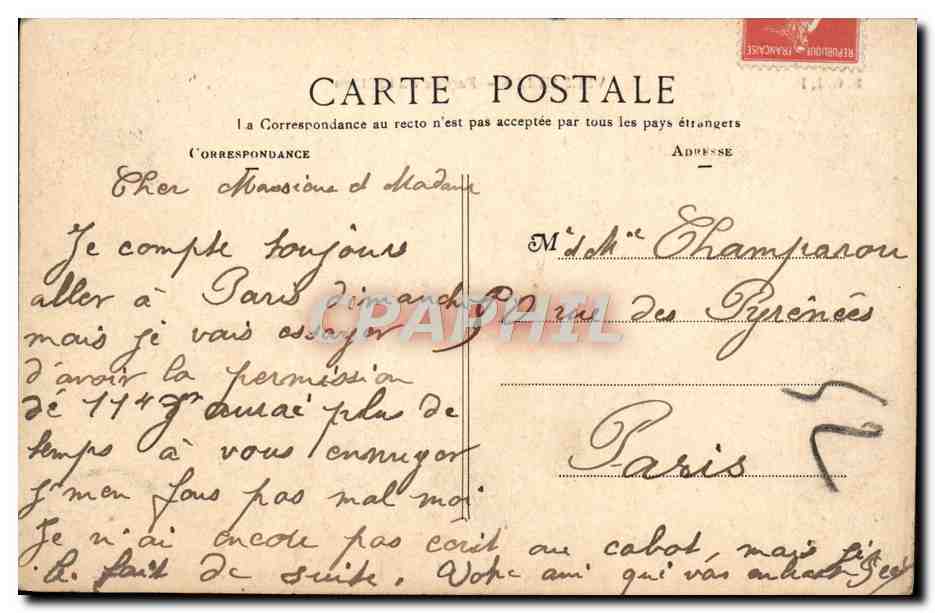 REPUBLIQUE FRANÇAISE
CARTE POSTALE
La Correspondance au recto n'est pas acceptée par tous les pays étrangers
CORRESPONDANCE
ADRESSE
Cher Massieue et Madame
Je compte toujours
aller à Paris dimanche
mais je vais essayer
d'avoir la permission
dé 11h aurai plus de
temps à vous ennuyer
J'men fous pas mal moi
Je n'ai encore pas écrit au cabot, mais
fait de suite. Votre ami qui vas
Mr et Mme Champarou
52 rue des Pyrénées
Paris
CPAPHIL